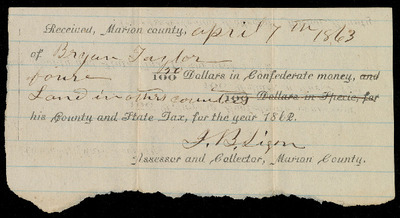 Received, Marion county, april 7th 1863
of Bryan Taylor
/100 Dollars in Confederate money, and
Land in others /100 Dollars in Specie, for
his County and State Tax, for the year 1862.
J. B.
Assessor and Collector, Marion County.